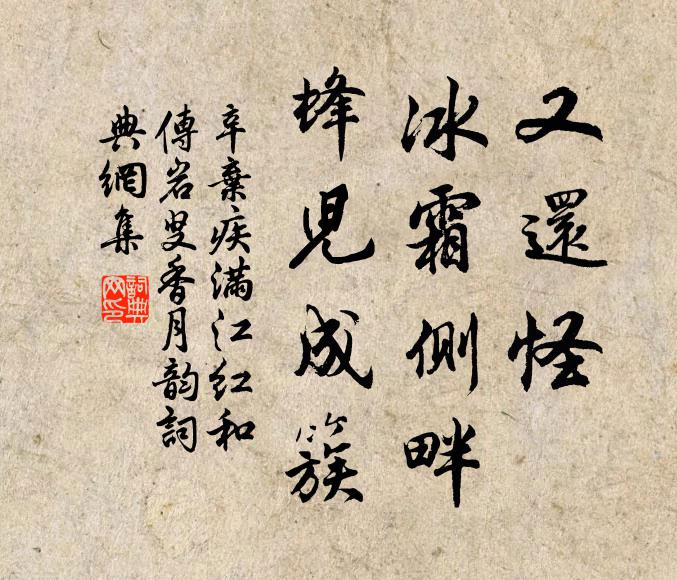 又還怪
冰霜側畔
蜂兒成簇
辛棄疾滿江紅和
傅岩叟香月韵詞
典網集
詞典網印